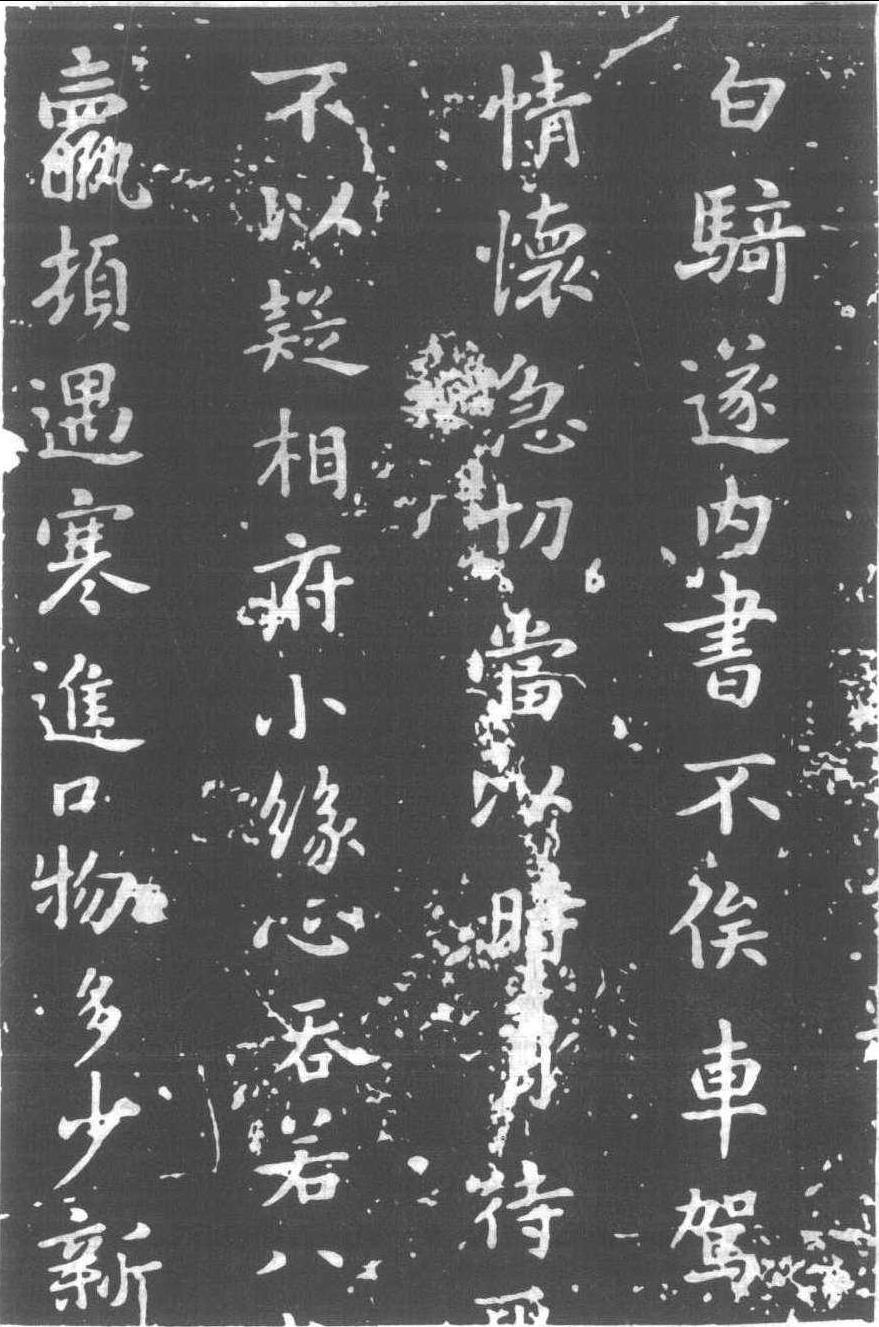 白騎遂内書不俟車駕
情懷急切當以時月待
不以疑相府小緣心吞若八
贏頓遇寒進口物多少新